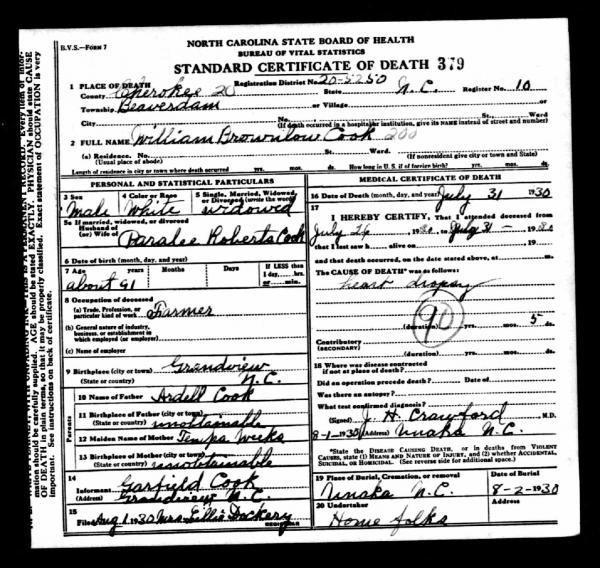 B.V.S.—FORM 7
NORTH CAROLINA STATE BOARD OF HEALTH
BUREAU OF VITAL STATISTICS
STANDARD CERTIFICATE OF DEATH 379
1 PLACE OF DEATH
Registration District No. 20-5250
County Cherokee 20 State N.C. Register No. 10
Township Beaverdam or Village or
City No. St. Ward
(If death occurred in a hospital or institution, give its NAME instead of street and number)
2 FULL NAME William Brownlow Cook 200
(a) Residence. No. St. Ward. (If nonresident give city or town and State)
(Usual place of abode)
Length of residence in city or town where death occurred yrs. mos. ds. How long in U.S. if of foreign birth? yrs. mos. ds.
PERSONAL AND STATISTICAL PARTICULARS
3 Sex 4 Color or Race 5 Single, Married, Widowed, or Divorced (write the word)
Male White widowed
5a If married, widowed, or divorced
Husband of
(or) Wife of Paralee Roberts Cook
6 Date of birth (month, day, and year)
7 Age years Months Days If LESS than 1 day, hrs. or min.
about 91
8 Occupation of deceased
(a) Trade, Profession, or particular kind of work Farmer
(b) General nature of industry, business, or establishment in which employed (or employer)
(c) Name of employer
9 Birthplace (city or town) Grandview
(State or country) N.C.
10 Name of Father Ardell Cook
Parents
11 Birthplace of Father (city or town)
(State or country) unobtainable
12 Maiden Name of Mother Weeks
13 Birthplace of Mother (city or town)
(State or country) unobtainable
14
Informant Garfield Cook
(Address) Grandview N.C.
15
Filed Aug 1 1930 Mrs Lillie Dockery
REGISTRAR
MEDICAL CERTIFICATE OF DEATH
16 Date of Death (month, day, and year) July 31 1930
17
I HEREBY CERTIFY, That I attended deceased from
July 26 1930, to July 31 - 1930
that I last saw h alive on 19
and that death occurred, on the date stated above, at m.
The CAUSE OF DEATH* was as follows:
heart dropsy
90
(duration) yrs. mos. 5 ds.
Contributory
(SECONDARY)
(duration) yrs. mos. ds.
18 Where was disease contracted
if not at place of death?
Did an operation precede death? Date of
Was there an autopsy?
What test confirmed diagnosis?
(Signed) J. H. Crawford M.D.
8-1-1930 (Address) Unaka N.C.
*State the DISEASE CAUSING DEATH, or in deaths from VIOLENT
CAUSES, state (1) MEANS AND NATURE OF INJURY, and (2) whether ACCIDENTAL,
SUICIDAL, OR HOMICIDAL. (See reverse side for additional space.)
19 Place of Burial, Cremation, or removal Date of Burial
Unaka N.C. 8-2-1930
20 Undertaker Address
Home folks
mation should be carefully supplied. AGE should be stated EXACTLY. PHYSICIAN should state CAUSE
OF DEATH in plain terms, so that it may be properly classified. Exact statement of OCCUPATION is very
important. See instructions on back of certificate.